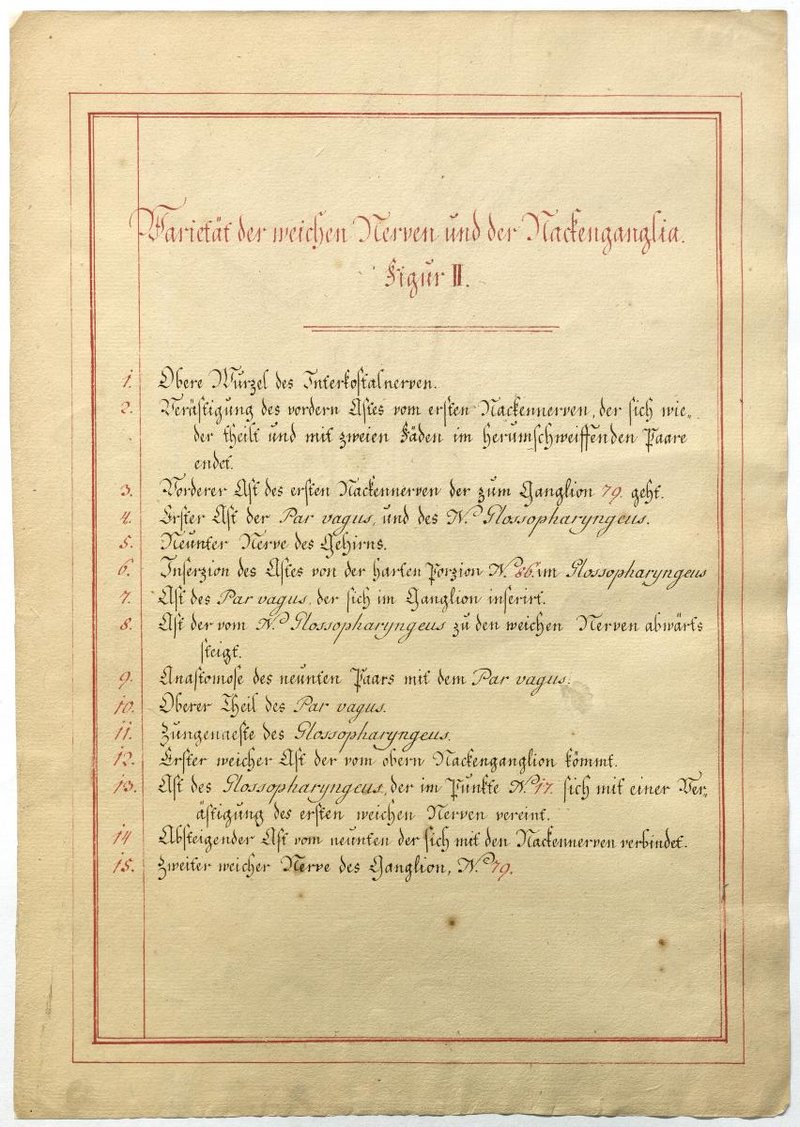 Varietät der weichen Nerven und der Nackenganglia.
Figur II.
1. Obere Wurzel des Interkostalnerven.
2. Verästigung des vordern Astes vom ersten Nackennerven, der sich wie„
der theilt und mit zweien Fäden im herumschweiffenden Paare
endet.
3. Vorderer Ast des ersten Nackennerven der zum Ganglion 79. geht.
4. Erster Ast der Par vagus, und des N.º Glossopharyngeus.
5. Neunter Nerve des Gehirns.
6. Inserzion des Astes von der harten Porzion N.º 86. im Glossopharyngeus
7. Ast des Par vagus, der sich im Ganglion inserirt.
8. Ast der vom N.º Glossopharyngeus zu den weichen Nerven abwärts
steigt.
9. Anastomose des neunten Paars mit dem Par vagus.
10. Oberer Theil des Par vagus.
11. Zungenaeste des Glossopharyngeus.
12. Erster weicher Ast der vom obern Nackenganglion kömmt.
13. Ast des Glossopharyngeus, der im Punkte N.º 17. sich mit einer Ver„
ästigung des ersten weichen Nerven vereint.
14 Absteigender Ast vom neunten der sich mit den Nackennerven verbindet.
15. Zweiter weicher Nerve des Ganglion, N.º 79.